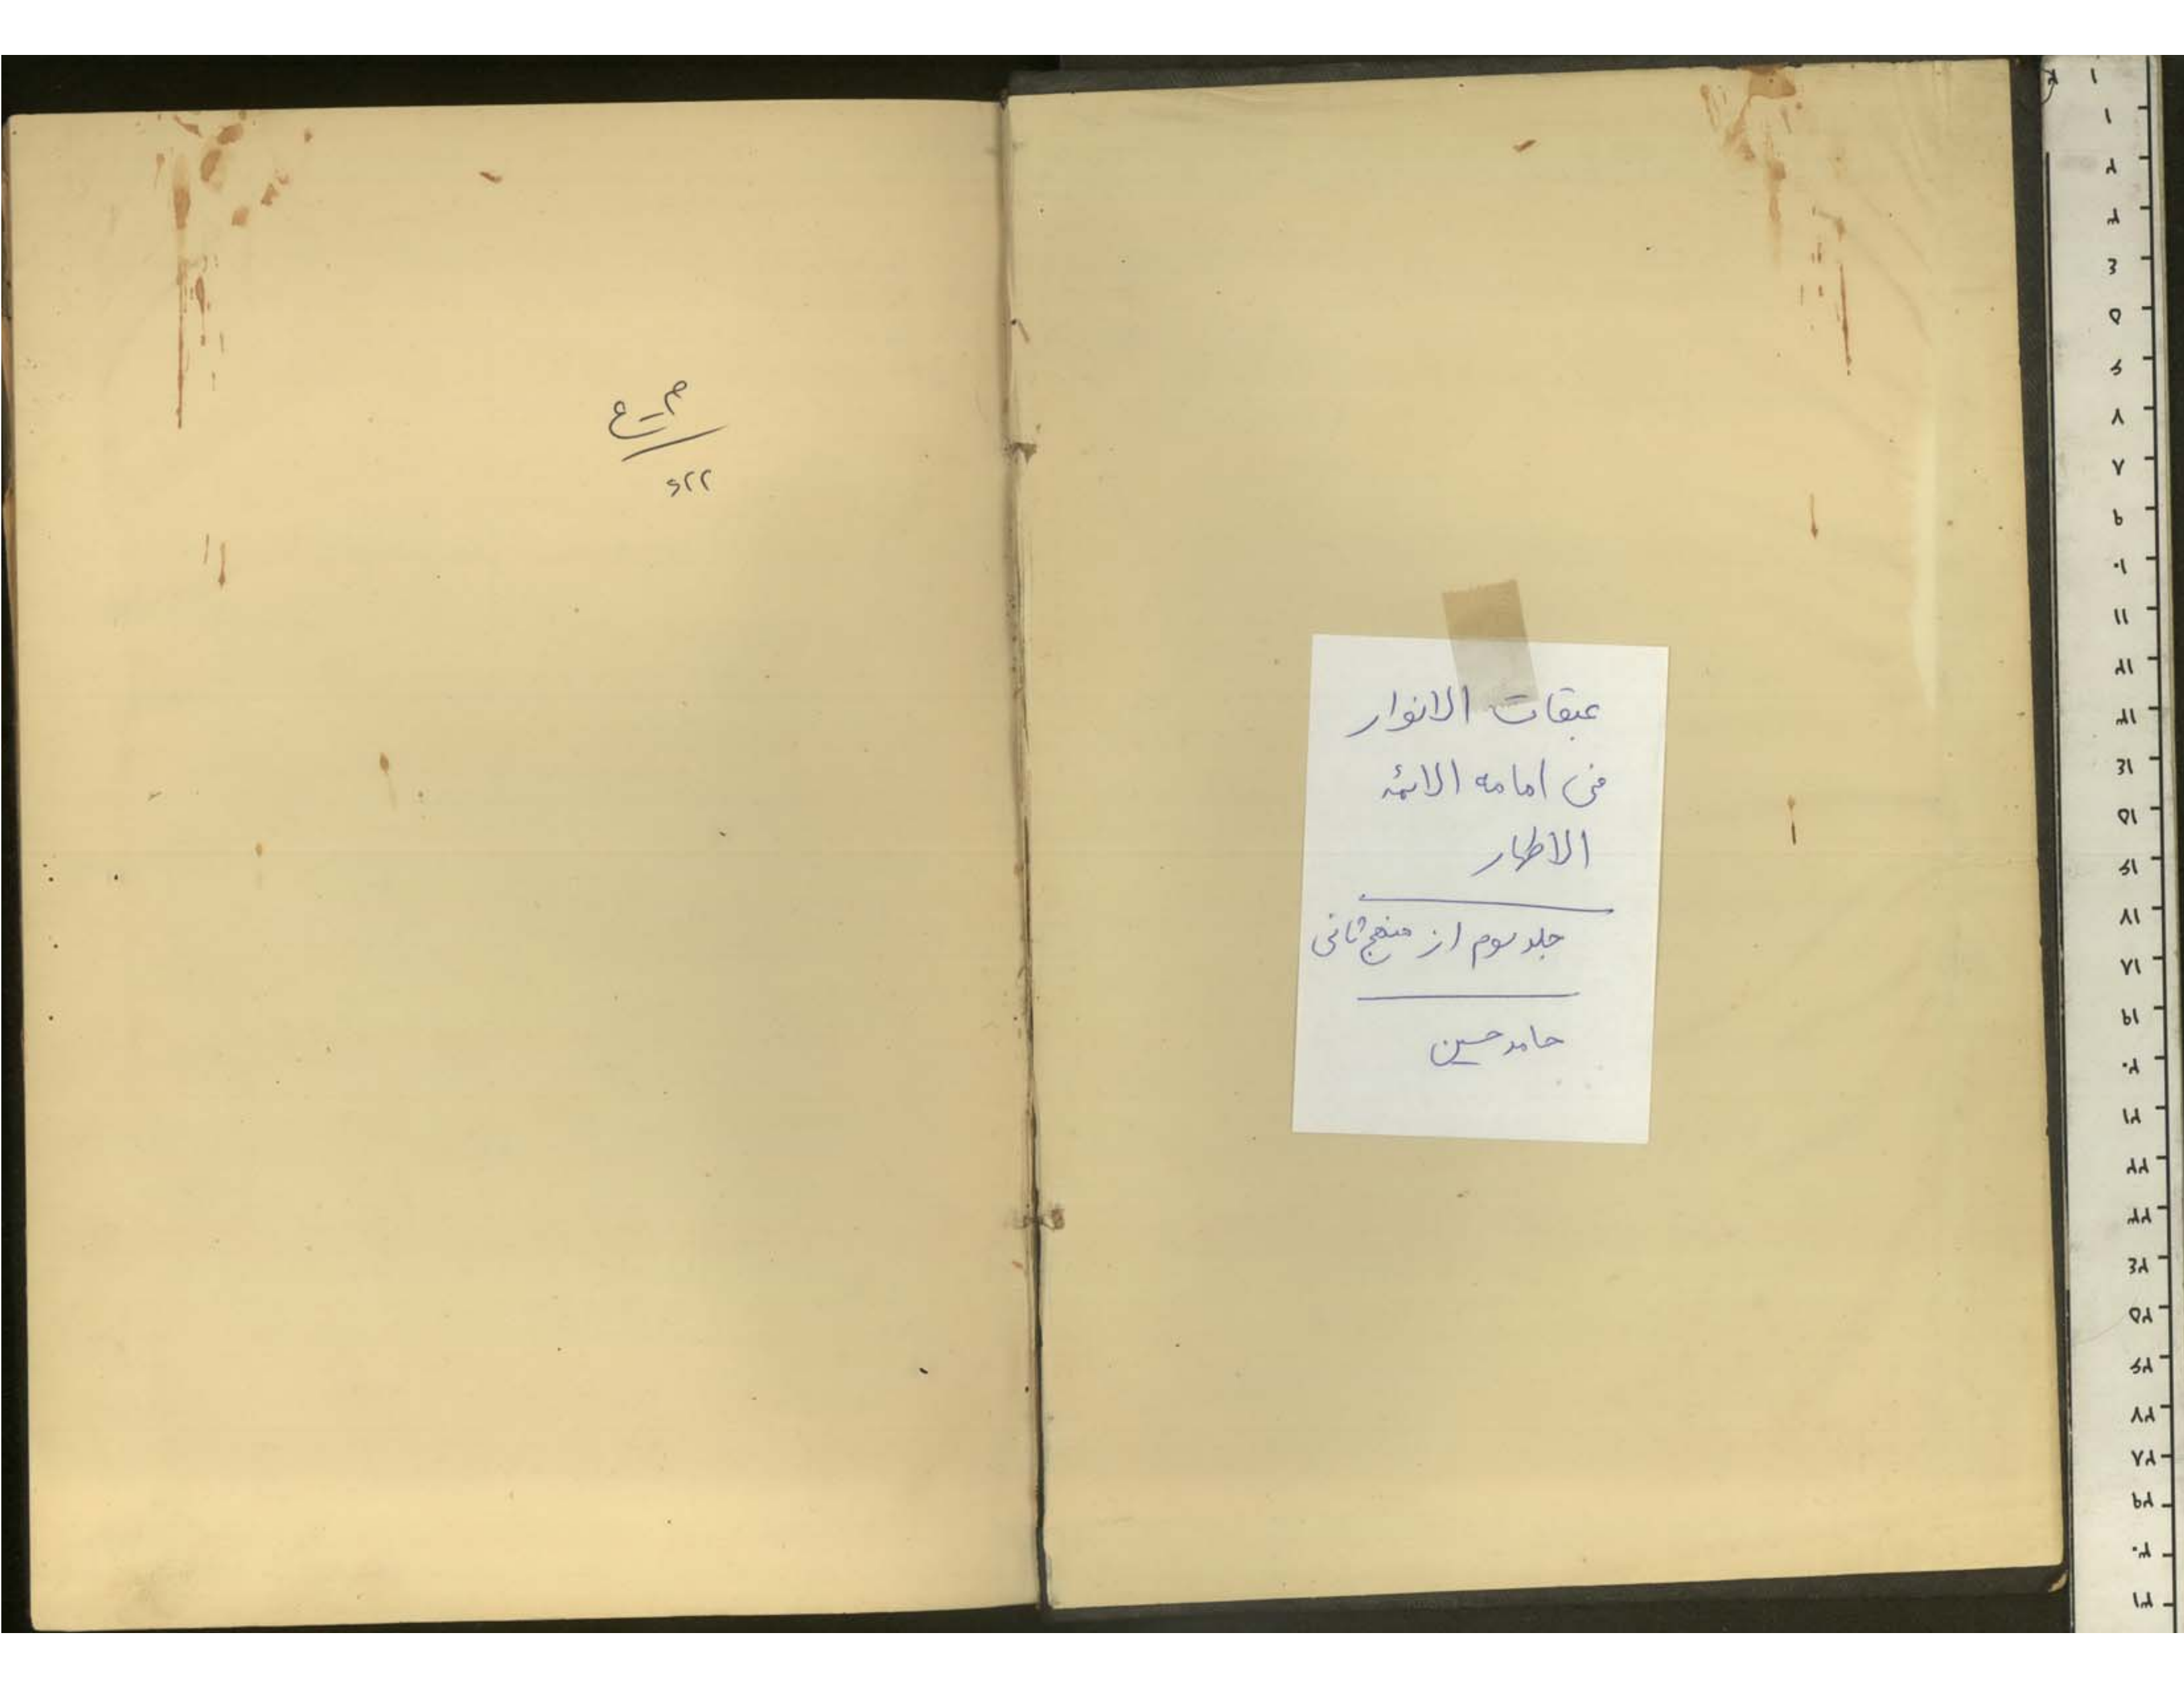 عبقات الانوار
فی امامه الائمه
الاطهار
جلد سوم از منهج ثانی
حامد حسین
م-ع
۲۲۶